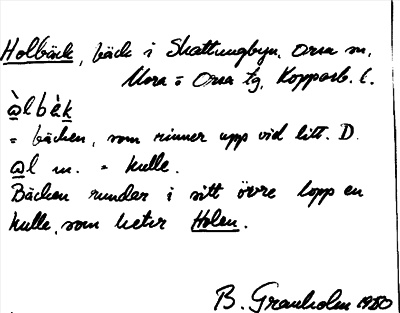 Holbäck, bäck i Skattungbyn, Orsa sn,
Mora o Orsa tg, Kopparb. l.
òlbèk
= bäcken, som rinner upp vid litt. D.
ol m. = kulle.
Bäcken rundar i sitt övre lopp en
kulle, som heter Holen.
B. Granholm 1980